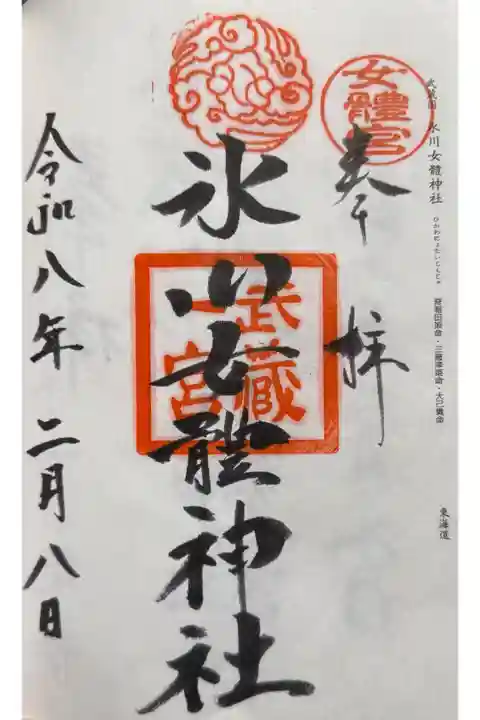 武蔵国 氷川女體神社 ひかわにょたいじんじゃ 奇稲田姫命・三穂津姫命・大己貴命
東海道
女體宮
奉拝
武蔵一宮
氷川女體神社
令和八年二月八日